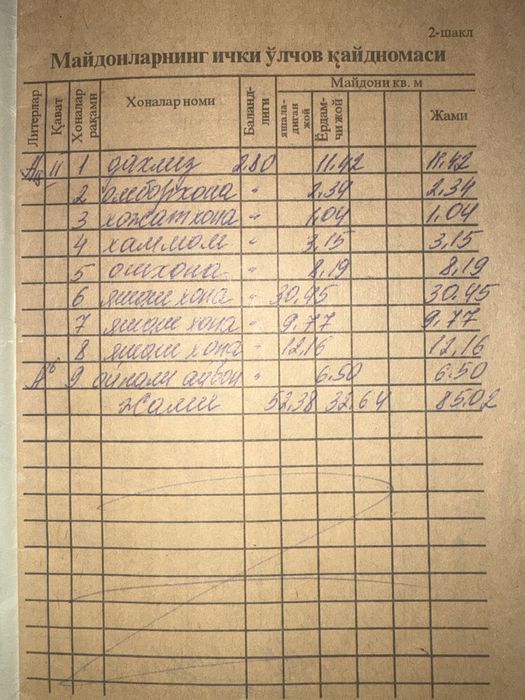 2-шакл
Майдонларнинг ички ўлчов қайдномаси
Литерлар Қават Хоналар рақами Хоналар номи Баланд-лиги Майдони кв. м яшала-диган жой Ёрдам-чи жой Жами
11 1 дахлиз 2.80 11.42 11.42
2 омборхона " 2.34 2.34
3 хожатхона " 1,04 1,04
4 хаммом " 3,15 3,15
5 ошхона " 8,19 8,19
6 яшаш хона " 30.45 30.45
7 яшаш хона " 9.77 9.77
8 яшаш хона " 12,16 12,16
9 ойнали айвон " 6.50 6.50
Жами 52,38 32,64 85.02